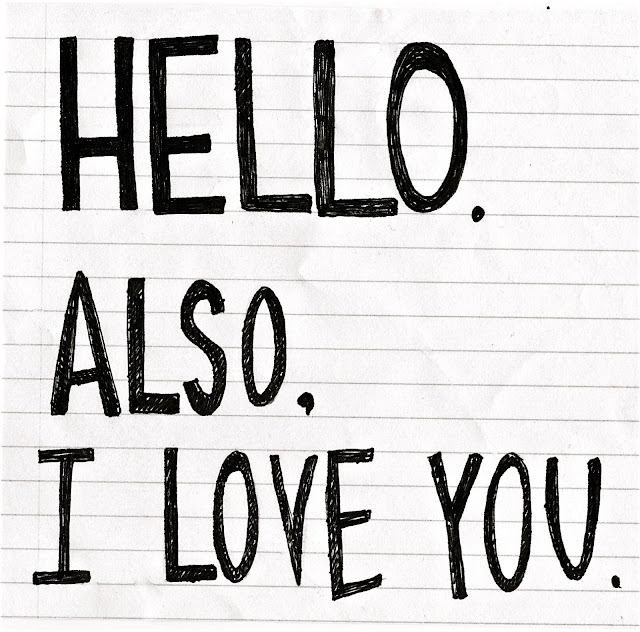 HELLO.
ALSO,
I LOVE YOU.